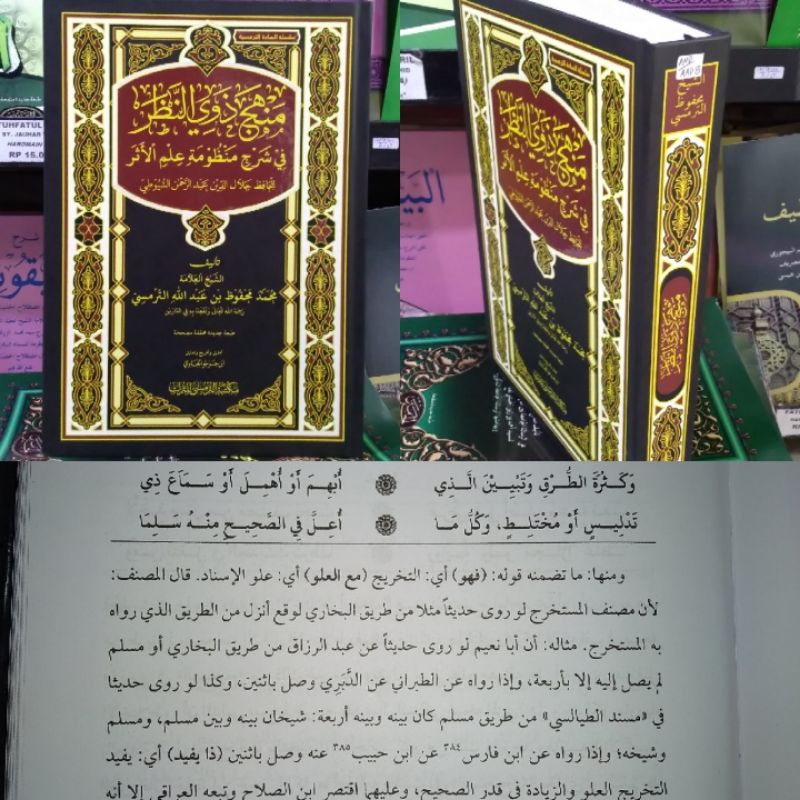 سلسلة السادة الترمسية
منهج ذوي النظر
في شرح منظومة علم الأثر
للحافظ جلال الدين عبد الرحمن السيوطي
تأليف
الشيخ العلامة
محمد محفوظ بن عبد الله الترمسي
رحمه الله تعالى ونفعنا به في الدارين
طبعة جديدة محققة مصححة
مكتبة الترمسي للتراث
TUHFATUL
SY. JAUHAR
HAROMAIN
RP 15.0
سلسلة السادة الترمسية
منهج ذوي النظر
في شرح منظومة علم الأثر
للحافظ جلال الدين عبد الرحمن السيوطي
الشيخ
محفوظ
الترمسي
منهج ذوي النظر
وَكَثْرَةَ الطُّرْقِ وَتَبْيِيْنَ الَّذِي أُبْهِمَ أَوْ أُهْمِلَ أَوْ سَمَاعَ ذِي
تَدْلِيسٍ أَوْ مُخْتَلِطٍ، وَكُلُّ مَا أُعِلَّ فِي الصَّحِيحِ مِنْهُ سَلِمَا
ومنها: ما تضمنه قوله: (فهو) أي: التخريج (مع العلو) أي: علو الإسناد. قال المصنف:
لأن مصنف المستخرج لو روى حديثاً مثلا من طريق البخاري لوقع أنزل من الطريق الذي رواه
به المستخرج. مثاله: أن أبا نعيم لو روى حديثاً عن عبد الرزاق من طريق البخاري أو مسلم
لم يصل إليه إلا بأربعة، وإذا رواه عن الطبراني عن الدَّبَرِي وصل باثنين، وكذا لو روى حديثا
في «مسند الطيالسي» من طريق مسلم كان بينه وبينه أربعة: شيخان بينه وبين مسلم، ومسلم
وشيخه؛ وإذا رواه عن ابن فارس٣٨٤ عن ابن حبيب٣٨٥ عنه وصل باثنين (ذا يفيد) أي: يفيد
التخريج العلو والزيادة في قدر الصحيح، وعليهما اقتصر ابن الصلاح وتبعه العراقي إلا أنه